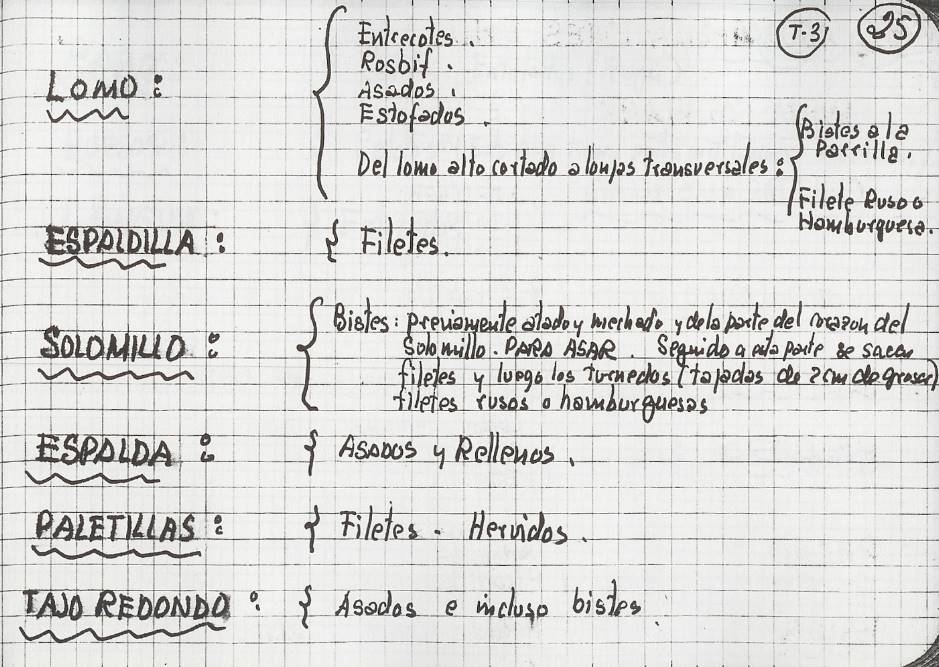 T-3 25
LOMO:
Entrecotes.
Rosbif.
Asados.
Estofados.
Del lomo alto cortado a lonjas transversales:
Bistes a la
Parrilla.
Filete Ruso o
Hamburguesa.
ESPALDILLA:
Filetes.
SOLOMILLO:
Bistes: previamente atado y mechado y de la parte del corazon del
Solomillo. PARA ASAR. Seguido a esta parte se sacan
filetes y luego los turnedos (tajadas de 2 cm de grosor)
filetes rusos o hamburguesas
ESPALDA:
ASADOS y Rellenos.
PALETILLAS:
Filetes - Hervidos.
TAJO REDONDO:
Asados e incluso bistes.